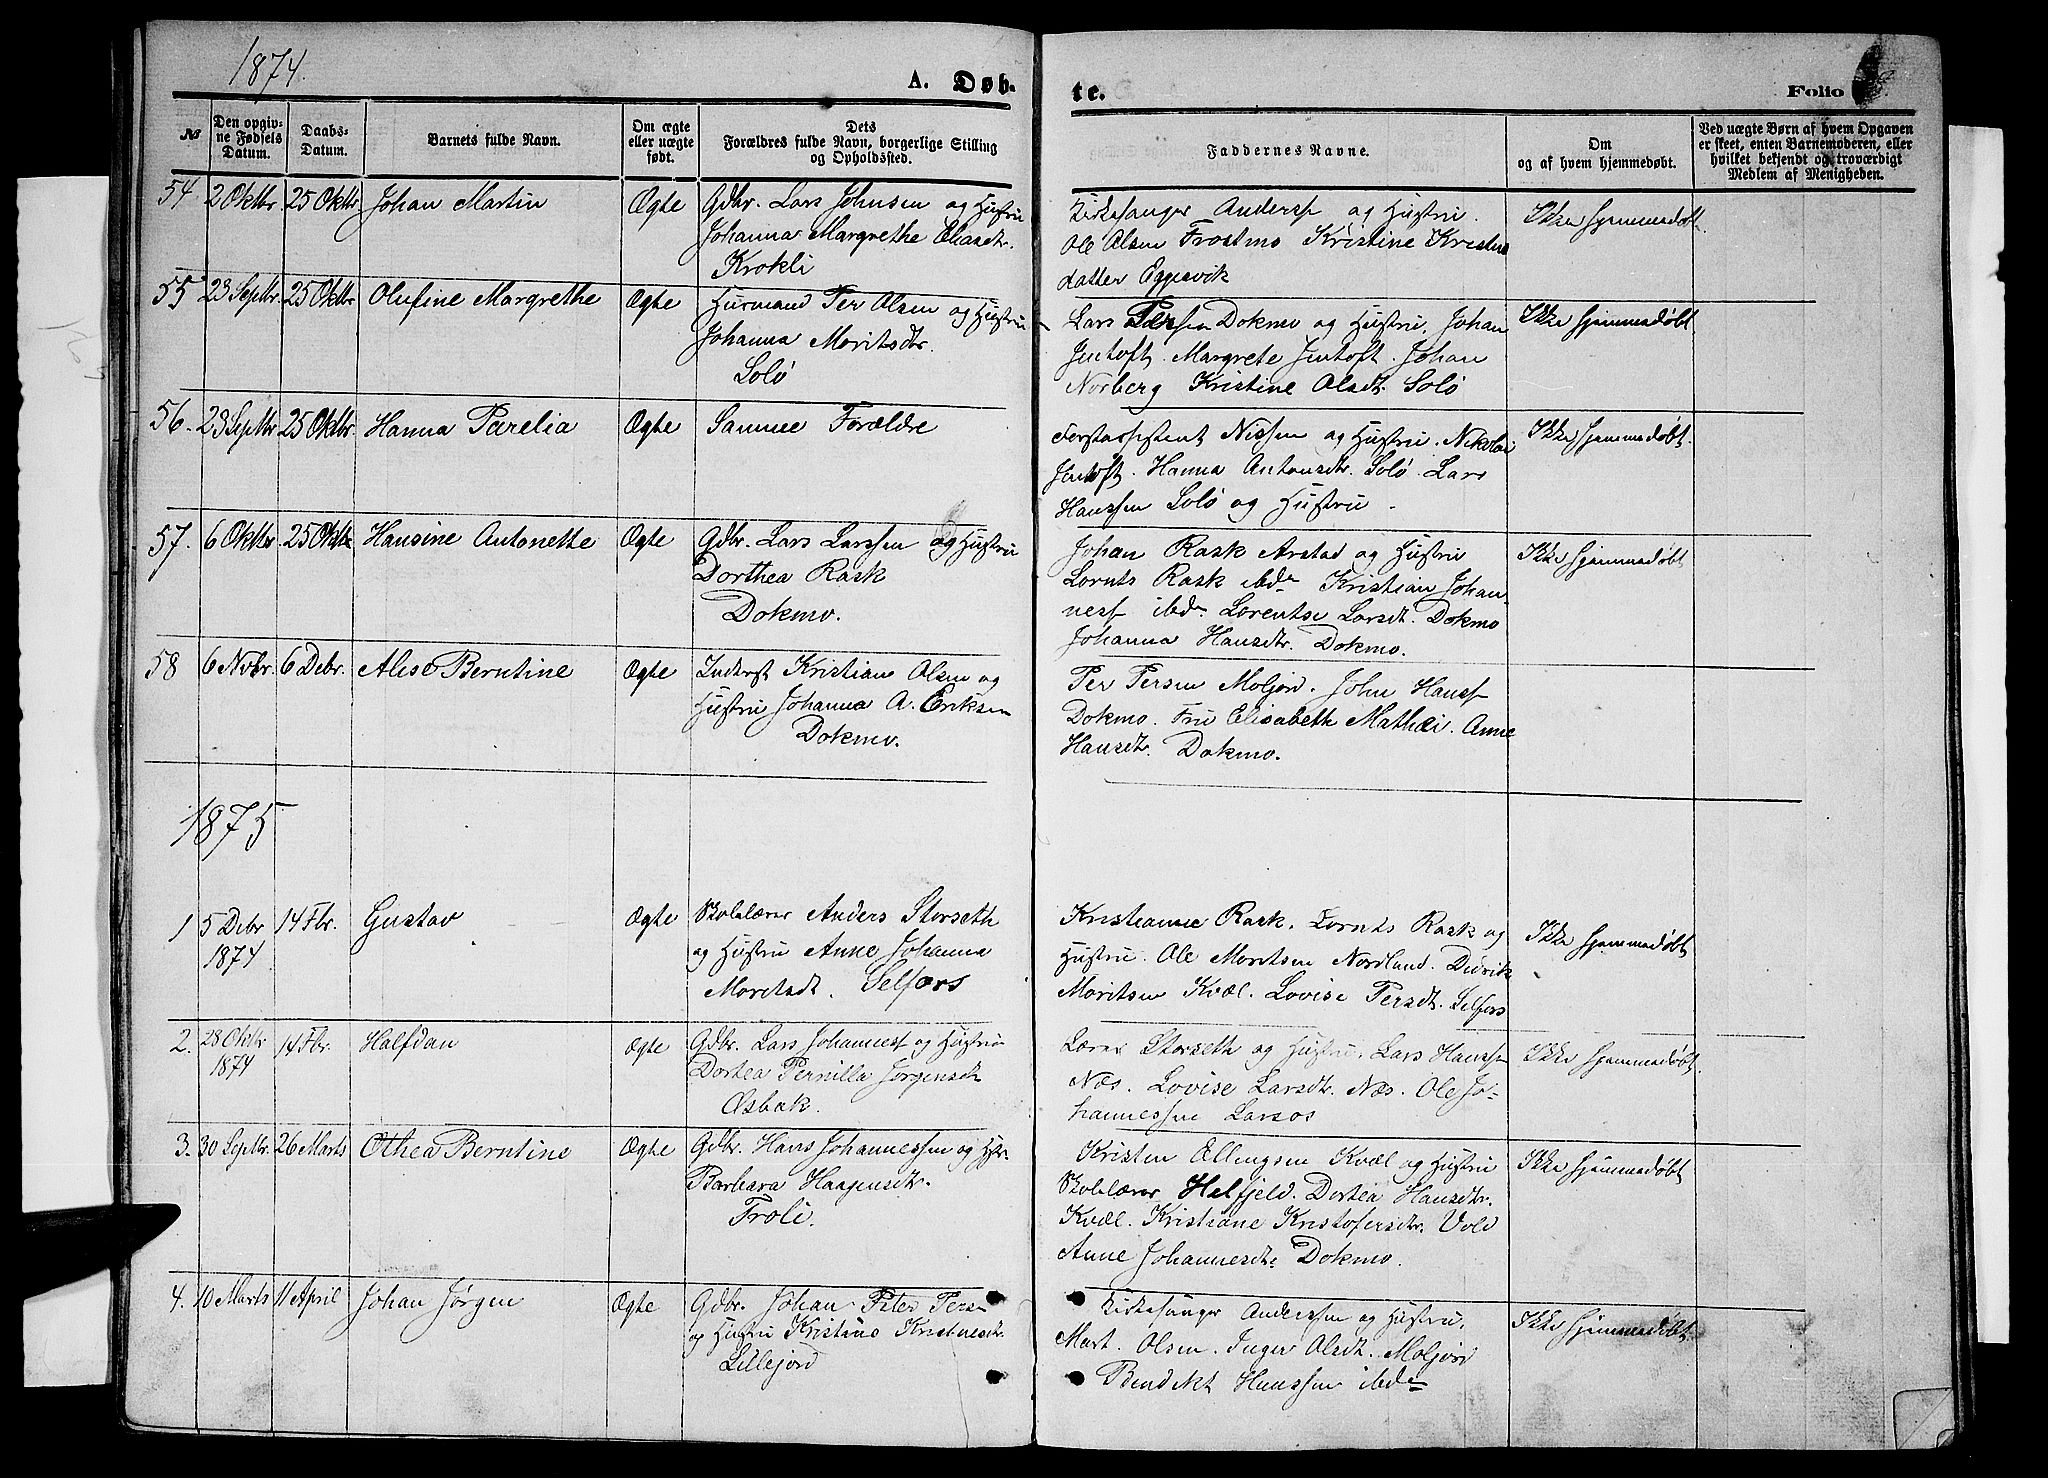 1874.
A. Døb-
te.
Folio
№
Den opgiv-
ne Fødsels
Datum.
Daabs-
Datum.
Barnets fulde Navn.
Om ægte
eller uægte
født.
Dets
Forældres fulde Navn, borgerlige Stilling
og Opholdssted.
Faddernes Navne.
Om
og af hvem hjemmedøbt.
Ved uægte Børn af hvem Opgaven
er skeet, enten Barnemoderen, eller
hvilket bekjendt og troværdigt
Medlem af Menigheden.
54 2 Oktbr 25 Oktbr Johan Martin Ægte Gdbr. Lars Johnsen og Hustru
Johanna Margrethe Eliasdtr.
Krokli
Kirkesanger Anderss og Hustru.
Ole Olsen Frostmo Kristine Kristens
datter Eggesvik
Ikke hjemmedøbt.
55 23 Septbr. 25 Oktbr Olufine Margrethe Ægte Husmand Per Olsen og Hustru
Johanna Moritsdtr.
Solö
Lars Persen Dokmo og Hustru, Johan
Jentoft. Margrete Jentoft. Johan
Norberg Kristine Olsdt. Solö
Ikke hjemmedøbt
56. 23 Septbr 25 Oktbr. Hanna Parelia Ægte Samme Forældre
Forstassistent Nissen og Hustru. Nikolai
Jentoft. Hanna Antonsdtr. Solö. Lars
Hanssen Solö og Hustru.
Ikke hjemmedøbt.
57. 6 Oktbr. 25 Oktbr Hansine Antonette Ægte Gdbr. Lars Larssen og Hustru
Dorthea Rask
Dokmo.
Johan Rask Arstad og Hustru
Lornts Rask ibdn Kristian Johan-
ness ibdn Lorentse Larsdt. Dokmo
Johanna Hansdtr. Dokmo.
Ikke hjemmedøbt
58 6 Nvbr. 6 Debr. Alise Berntine Ægte Inderst Kristian Olsen og
Hustru Johanna A. Eriksen
Dokmo.
Per Persen Moljord. John Hanss
Dokmo. Fru Elisabeth Mathæi. Anne
Hansdtr. Dokmo.
1875
1 5 Debr 14 Fbr. Gustav Ægte Skolelærer Anders Storseth
1874 og Hustru Anne Johanna
Moritsdt. Selfors
Kristianne Rask. Lornts Rask og
Hustru. Ole Moritsen Nordland. Didrik
Moritsen Kvæl. Lovise Persdt. Selfors
Ikke hjemmedøbt
2. 28 Oktbr 14 Fbr. Halfdan Ægte Gdbr. Lars Johanness og Hustru
1874 Dortea Pernilla Jørgensdt
Osbak.
Lærer Storseth og Hustru. Lars Hanss
Næs. Lovise Larsdtr. Næs. Ole Jo-
hannessen Larsos
Ikke hjemmedøbt.
3. 30 Septbr. 26 Marts Othea Berntine Ægte Gdbr. Hans Johannessen og Hstr.
Barbara Haagensdtr.
Troli.
Kristen Ellingsen Kvæl og Hustru
Skolelærer Helfjeld. Dortea Hansdtr.
Kvæl. Kristiane Kristofersdtr. Vold
Anne Johannesdtr Dokmo.
Ikke hjemmedøbt
4. 10 Marts 11 April Johan Jørgen Ægte Gdbr. Johan Peter Persen
og Hustru Kristine Kristensdtr.
Lillejord
Kirkesanger Anderssen og Hustru.
Mart. Olsen. Inger Olsdt. Moljord
Bendikt Hanssen ibdn
Ikke hjemmedøbt